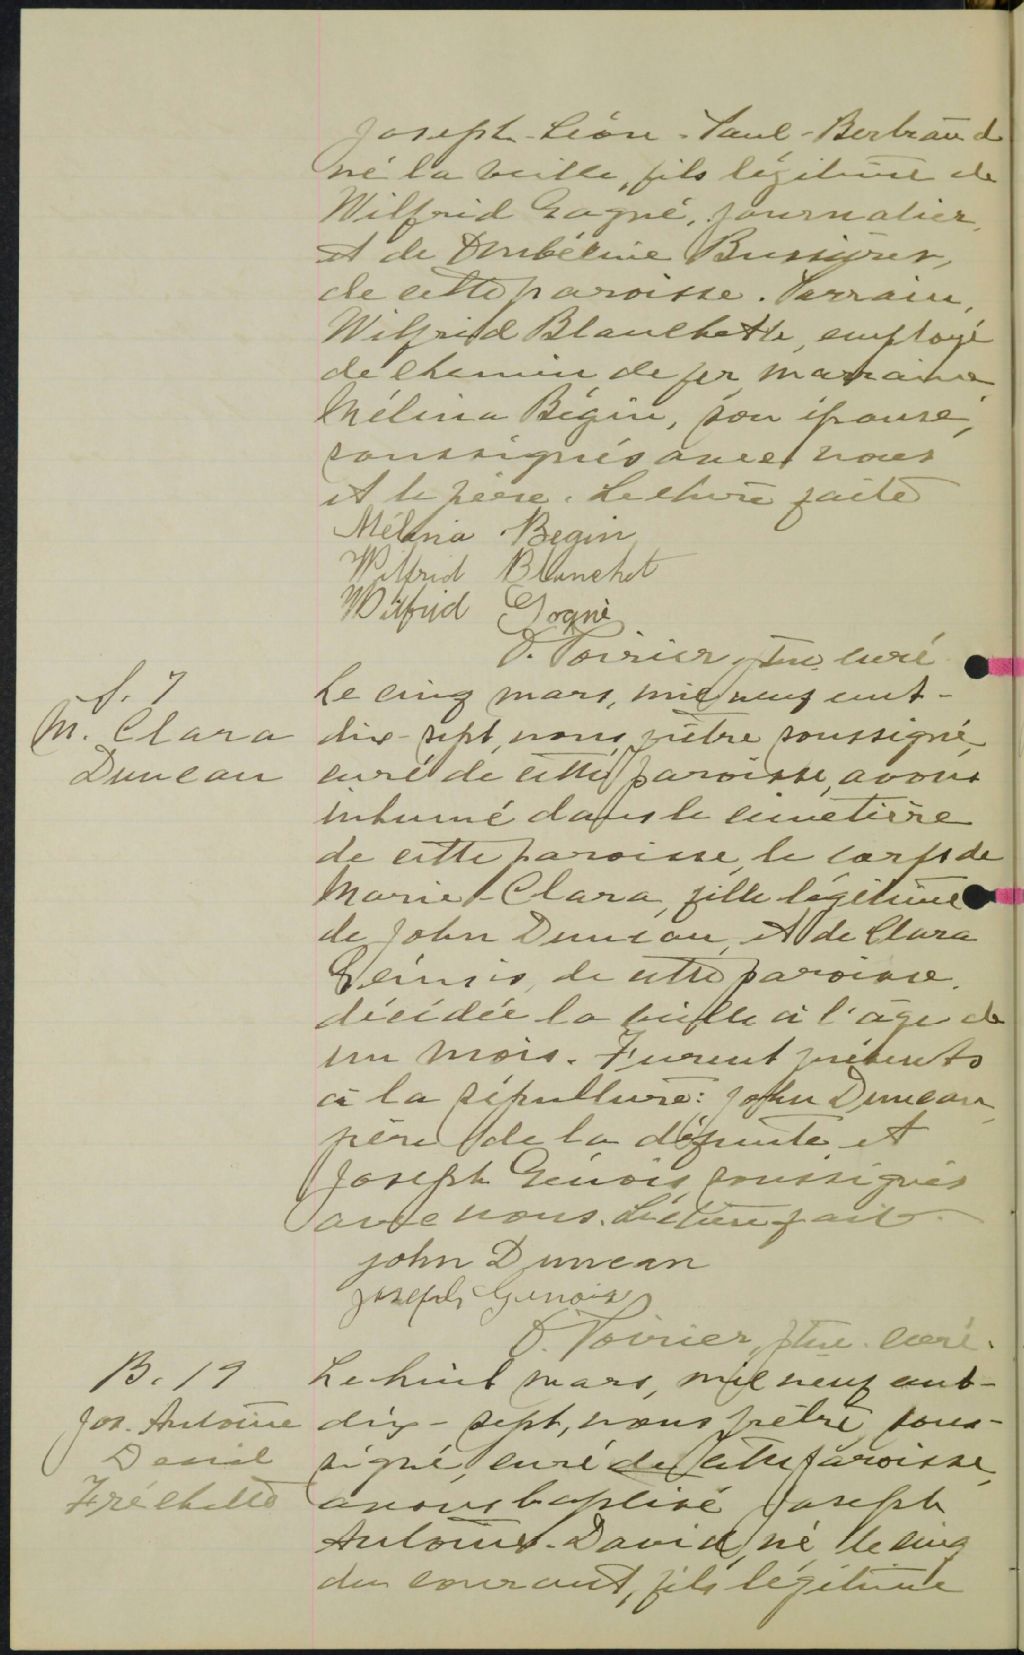 Joseph-Léon-Paul-Bertrand
né la veille, fils légitime de
Wilfrid Gagné, journalier,
et de Bussières,
de cette paroisse. Parrain,
Wilfrid Blanchette, employé
de chemin de fer, marraine
Mélina Bégin, son épouse,
soussignés avec nous
et le père. Lecture faite
Mélina Begin
Wilfrid Blanchet
Wilfrid Gagné
O. Poirier, ptre curé
S. 7
M. Clara
Duncan
Le cinq mars, mil neuf cent-
dix-sept, nous, prêtre soussigné,
curé de cette paroisse, avons
inhumé dans le cimetière
de cette paroisse, le corps de
Marie-Clara, fille légitime
de John Duncan, et de Clara
de cette paroisse,
décédée la veille à l'âge de
un mois. Furent présents
à la sépulture: John Duncan,
père de la défunte et
Joseph Génois soussignés
avec nous. Lecture faite.
john Duncan
joseph Genois
O. Poirier, ptre. curé.
B. 19
Jos. Antoine
David
Fréchette
Le huit mars, mil neuf cent-
dix-sept, nous prêtre sous-
signé, curé de cette paroisse,
avons baptisé Joseph
Antoine-David, né le cinq
du courant, fils légitime